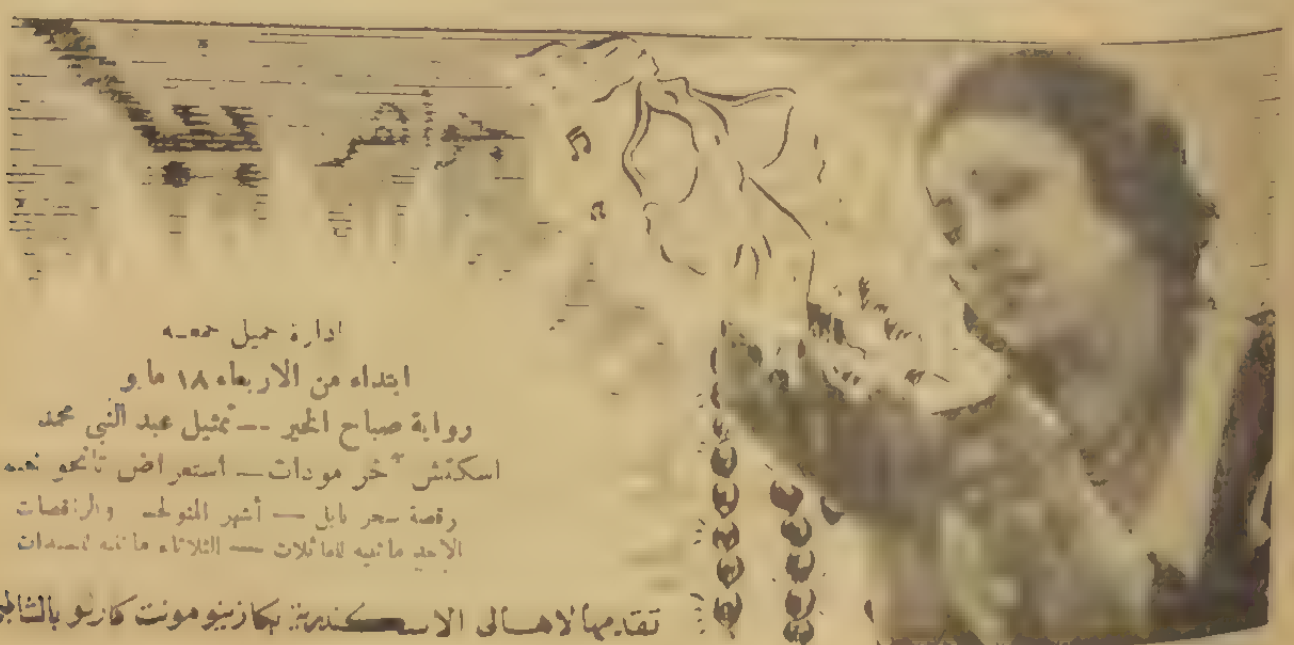 ادارة جميل جمعه
ابتداء من الاربعاء ١٨ مايو
رواية صباح الخير — تمثيل عبد النبي محمد
اسكتش آخر مودات — استعراض تانجو
رقصة سحر بابل — أشهر المنولجـ والراقصات
الاحد ماتينيه للعائلات — الثلاثاء ماتينيه للسيدات
تقدمها لاهالى الاسكندرية بكازينو مونت كارلو بالشاطبى